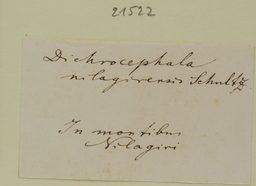 21522
Dichrocephala
nilagirensis Schultz
In montibus
Nilagiri